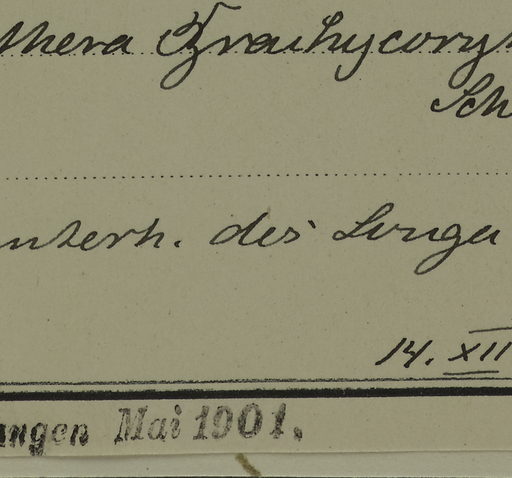 thera Brachycory
Sch
unterh. des Lunga
14. XII
ungen Mai 1901.